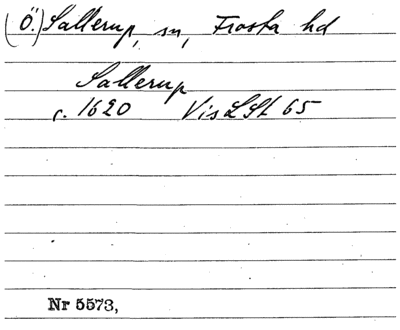 (Ö.) Sallerup, sn, Frosta hd
Sallerup
c. 1620 Vis LSt 65
Nr 5573,